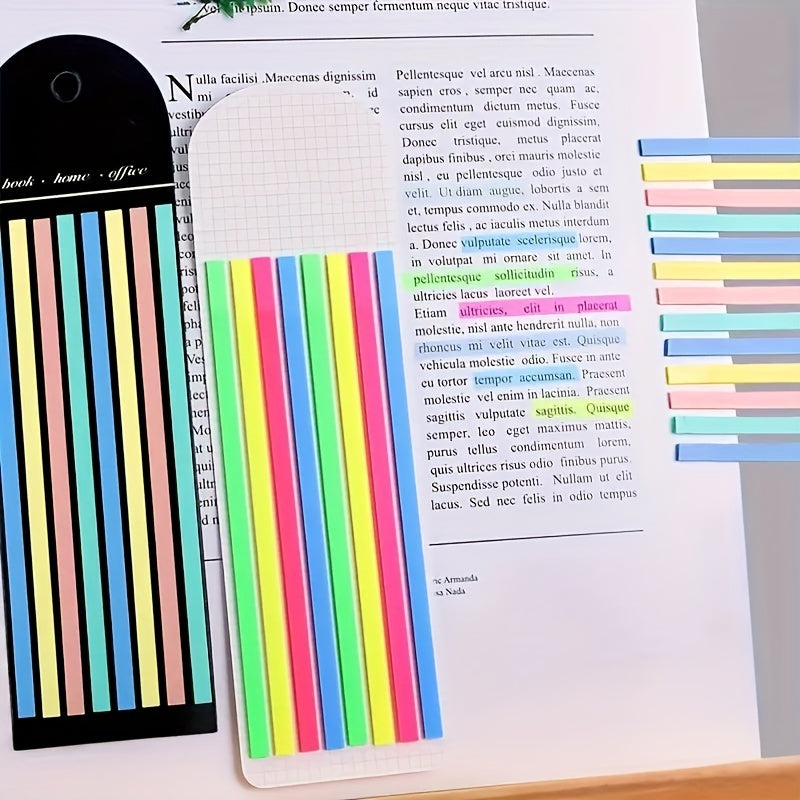 ipsum. Donec semper fermentum neque vitae tristique.
book · home · office
Nulla facilisi .Maecenas dignissim
mi id
Pellentesque vel arcu nisl . Maecenas
sapien eros , semper nec quam ac,
condimentum dictum metus. Fusce
cursus elit eget euismod dignissim,
Donec tristique, metus placerat
dapibus finibus , orci mauris molestie
nisl , eu pellentesque odio justo et
velit. Ut diam augue, lobortis a sem
et, tempus commodo ex. Nulla blandit
lectus felis , ac iaculis metus interdum
a. Donec vulputate scelerisque lorem,
in volutpat mi ornare sit amet. In
pellentesque sollicitudin risus, a
ultricies lacus laoreet vel.
Etiam ultricies, elit in placerat
molestie, nisl ante hendrerit nulla, non
rhoncus mi velit vitae est. Quisque
vehicula molestie odio. Fusce in ante
eu tortor tempor accumsan. Praesent
molestie vel enim in lacinia. Praesent
sagittis vulputate sagittis. Quisque
semper, leo eget maximus mattis,
purus tellus condimentum lorem,
quis ultrices risus odio finibus purus.
Suspendisse potenti. Nullam ut elit
lacus. Sed nec felis in odio tempus
Armanda
Nada